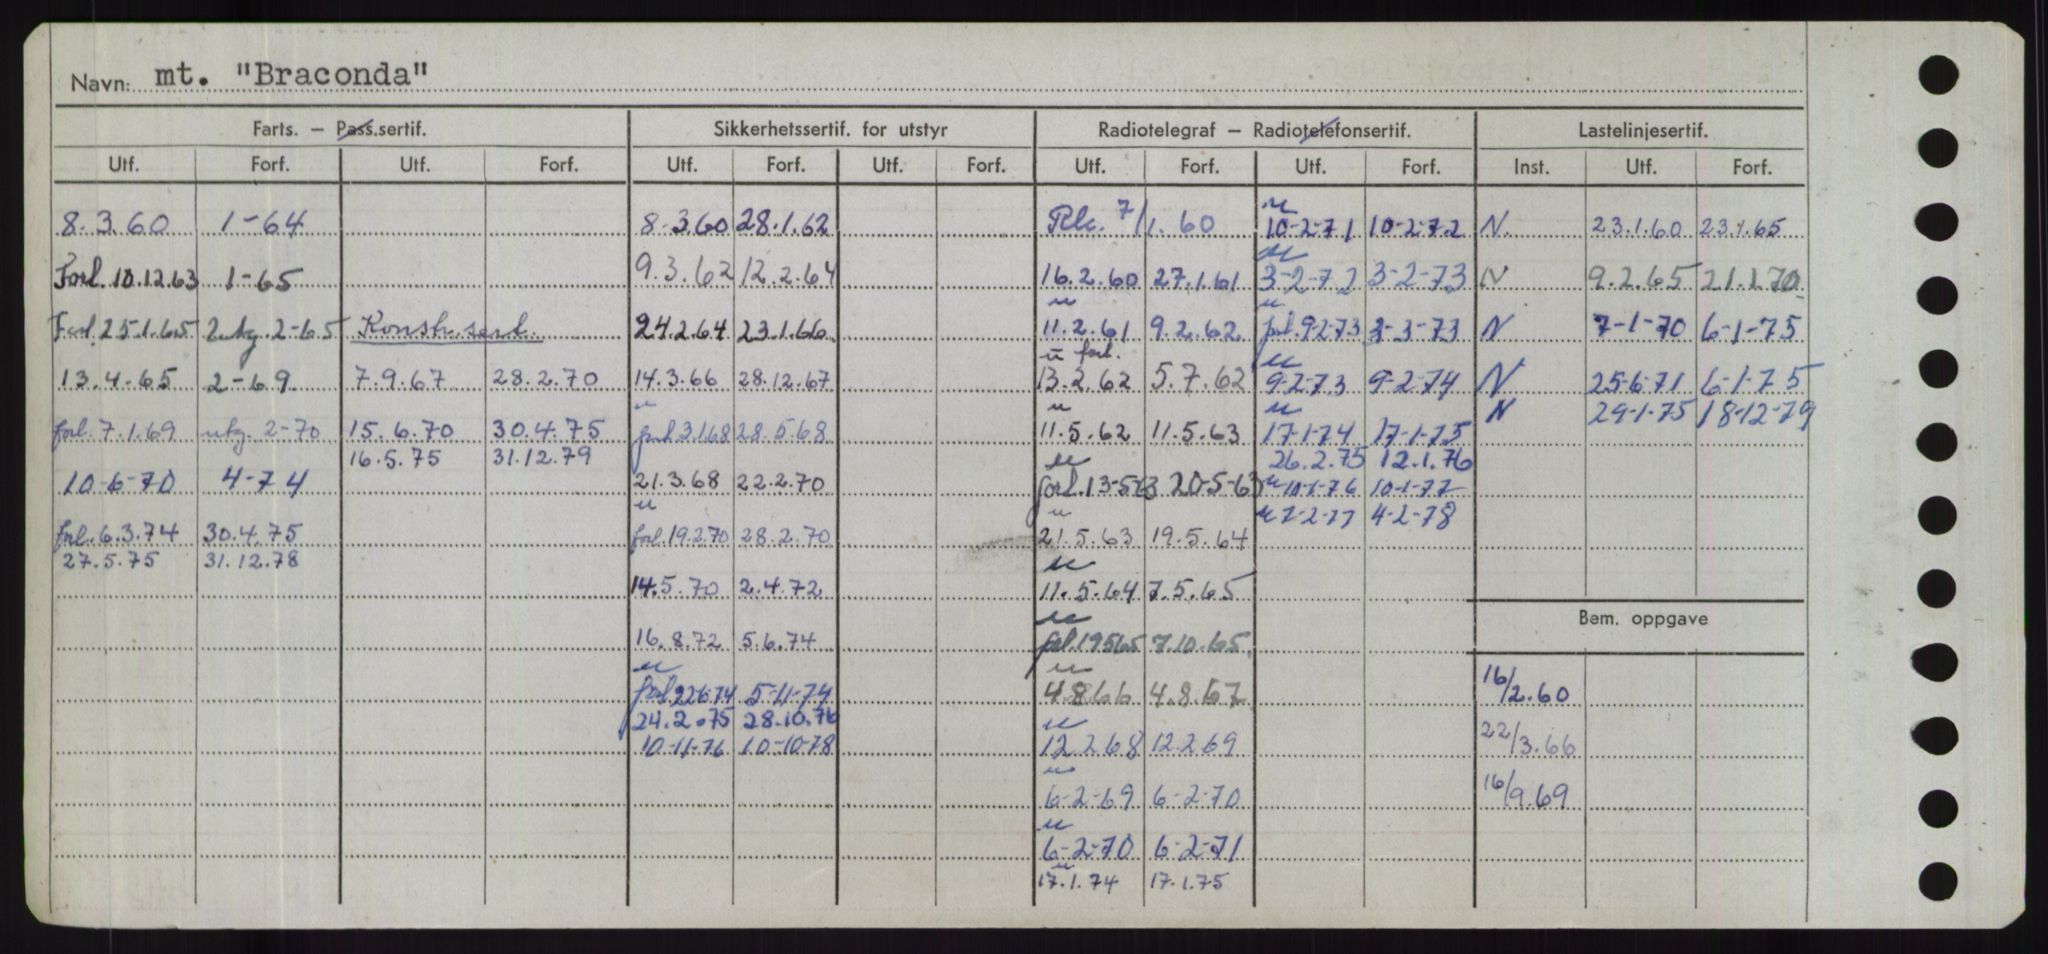 Navn: mt. "Braconda"
Farts. — Pass.sertif. Sikkerhetssertif. for utstyr Radiotelegraf — Radiotelefonsertif. Lastelinjesertif.
Utf. Forf. Utf. Forf. Utf. Forf. Utf. Forf. Utf. Forf. Utf. Forf. Inst. Utf. Forf.
8.3.60 1-64 8.3.60 28.1.62 7/1.60 10-2-71 10-2-72 N 23.1.60 23.1.65
Forl. 10.12.63 1-65 9.3.62 12.2.64 16.2.60 27.1.61 3-2-72 3-2-73 N 9.2.65 21.1.70
Forl. 25.1.65 2-65 Konstr.sert. 24.2.64 23.1.66 11.2.61 9.2.62 forl. 9-2-73 3-3-73 N 7-1-70 6-1-75
13.4.65 2-69 7.9.67 28.2.70 14.3.66 28.12.67 u forl. 13.2.62 5.7.62 9-2-73 9-2-74 N 25-6-71 6-1-75
N 29-1-75 18-12-79
forl. 7.1.69 utg. 2-70 15.6.70 30.4.75 forl. 3.1.68 28.5.68 11.5.62 11.5.63 17-1-74 17-1-75
16.5.75 31.12.79 26.2.75 12.1.76
10-6-70 4-74 21.3.68 22.2.70 forl. 13-5-63 20-5-63 10-1-76 10-1-77
7-2-77 4-2-78
forl. 6.3.74 30.4.75 forl. 19.2.70 28.2.70 21.5.63 19.5.64
27.5.75 31.12.78
14.5.70 2.4.72 11.5.64 7.5.65
Bem. oppgave
16.8.72 5.6.74 forl. 19565 7.10.65
forl. 22674 5-11-74 4.8.66 4.8.67 16/2.60
24.2.75 28.10.76
10-11-76 10-10-78 12.2.68 12.2.69 22/3.66
6-2-69 6-2-70 16/9.69
6-2-70 6-2-71
17.1.74 17.1.75